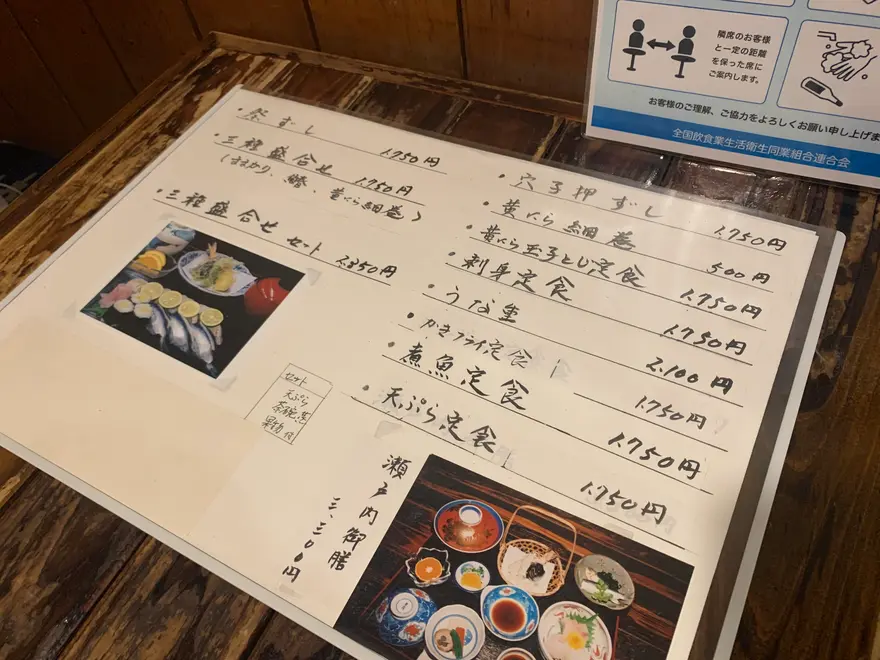 ・祭ずし 1,750円
・三種盛合せ 1,750円
(ままかり、鰆、黄にら細巻)
・三種盛合せ セット 2,850円
セット
天ぷら
茶碗蒸
果物 付
・穴子押ずし 1,750円
・黄にら細巻 500円
・黄にら玉子とじ定食 1,750円
・刺身定食 1,750円
・うな重 2,100円
・かきフライ定食 1,750円
・煮魚定食 1,750円
・天ぷら定食 1,750円
瀬戸内御膳
三、三〇〇円
隣席のお客様
と一定の距離
を保った席に
ご案内します。
お客様のご理解、ご協力をよろしくお願い申し上げま
全国飲食業生活衛生同業組合連合会